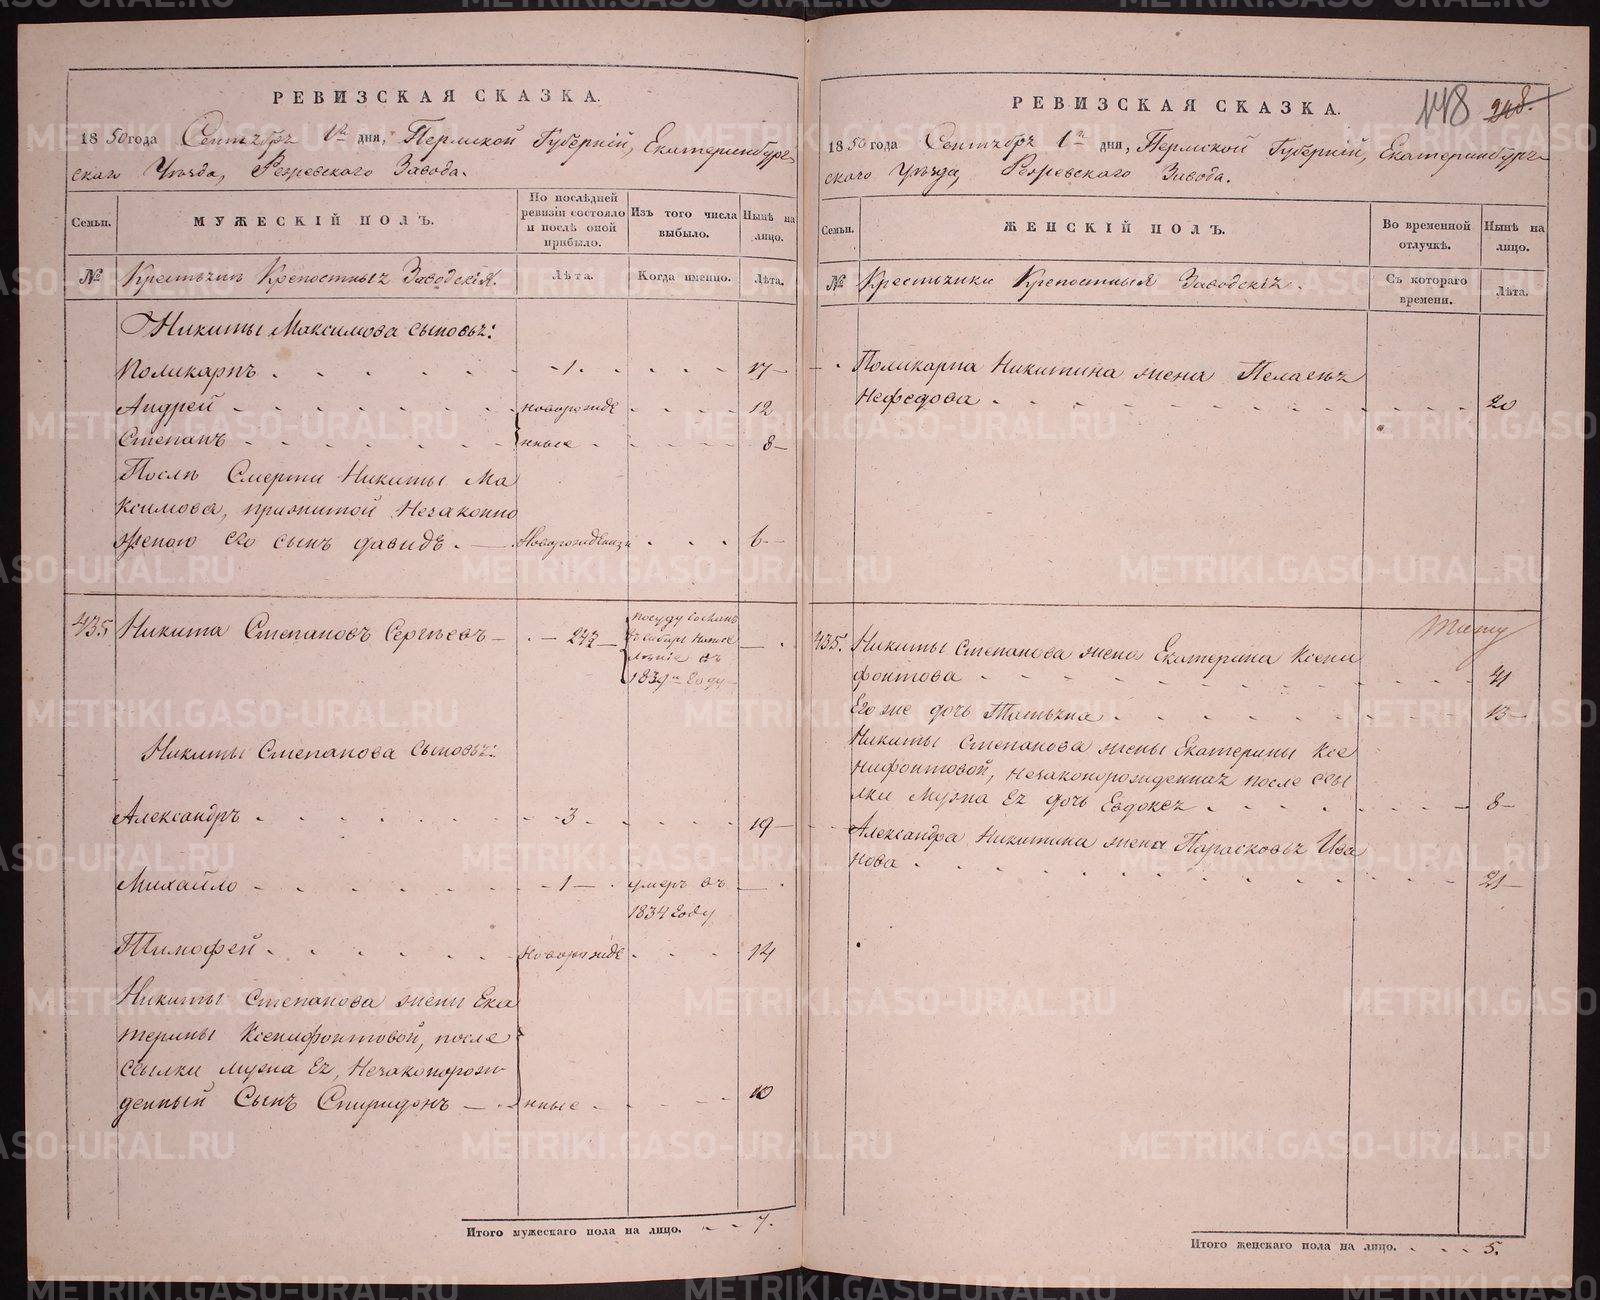 РЕВИЗСКАЯ СКАЗКА.
1850 года Сентября 1го дня, Пермской Губернiй, Екатеринбург-
скаго Уѣзда, Режевскаго Завода.
Семьи.
МУЖЕСКIЙ ПОЛЪ.
По послѣдней ревизiи состояло и послѣ оной прибыло.
Изъ того числа выбыло.
Нынѣ на лицо.
№
Крестьяне Крепостные Заводскiя.
Лѣта.
Когда именно.
Лѣта.
Никиты Максимова сыновья:
Поликарпъ 1. 17
Андрей новорожде 12
Степанъ нные 8
Послѣ Смерти Никиты Ма
ксимова, прижитой Незаконно
женою его сынъ давидъ. Новорожденный 6
435 Никита Степановъ Сергѣевъ 27½
посуду сосланъ
въ сибирь на посе
ленiе въ
1839м году
Никиты Степанова сыновья:
Александръ 3 19
Михайло 1 умеръ въ
1834 году
Тимофей новорожде 14
Никиты Степанова жены Ека
терины Ксенифонтовой, после
ссылки мужа Ея, Незаконорож-
денный Сынъ Спиридонъ нные 10
Итого мужескаго пола на лицо. 7.
РЕВИЗСКАЯ СКАЗКА.
118 248.
1850 года Сентября 1го дня, Пермской Губернiй, Екатеринбург-
скаго Уѣзда, Режевскаго Завода.
Семьи.
ЖЕНСКIЙ ПОЛЪ.
Во временной отлучкѣ.
Нынѣ на лицо.
№
Крестьянки Крепостныя Заводскiя.
Съ котораго времени.
Лѣта.
Поликарпа Никитина жена Пелагея
Нефедова 20
435. Никиты Степанова жена Екатерина Ксени
фонтова 41
Его же дочь Татьяна 13
Никиты Степанова жены Екатерины Ксе
нифонтовой, незаконорожденная после ссы
лки Мужа Ея дочь Евдокея 8
Александра Никитина жена Парасковья Ива
нова 21
Итого женскаго пола на лицо. 5.
METRIKI.GASO-URAL.RU